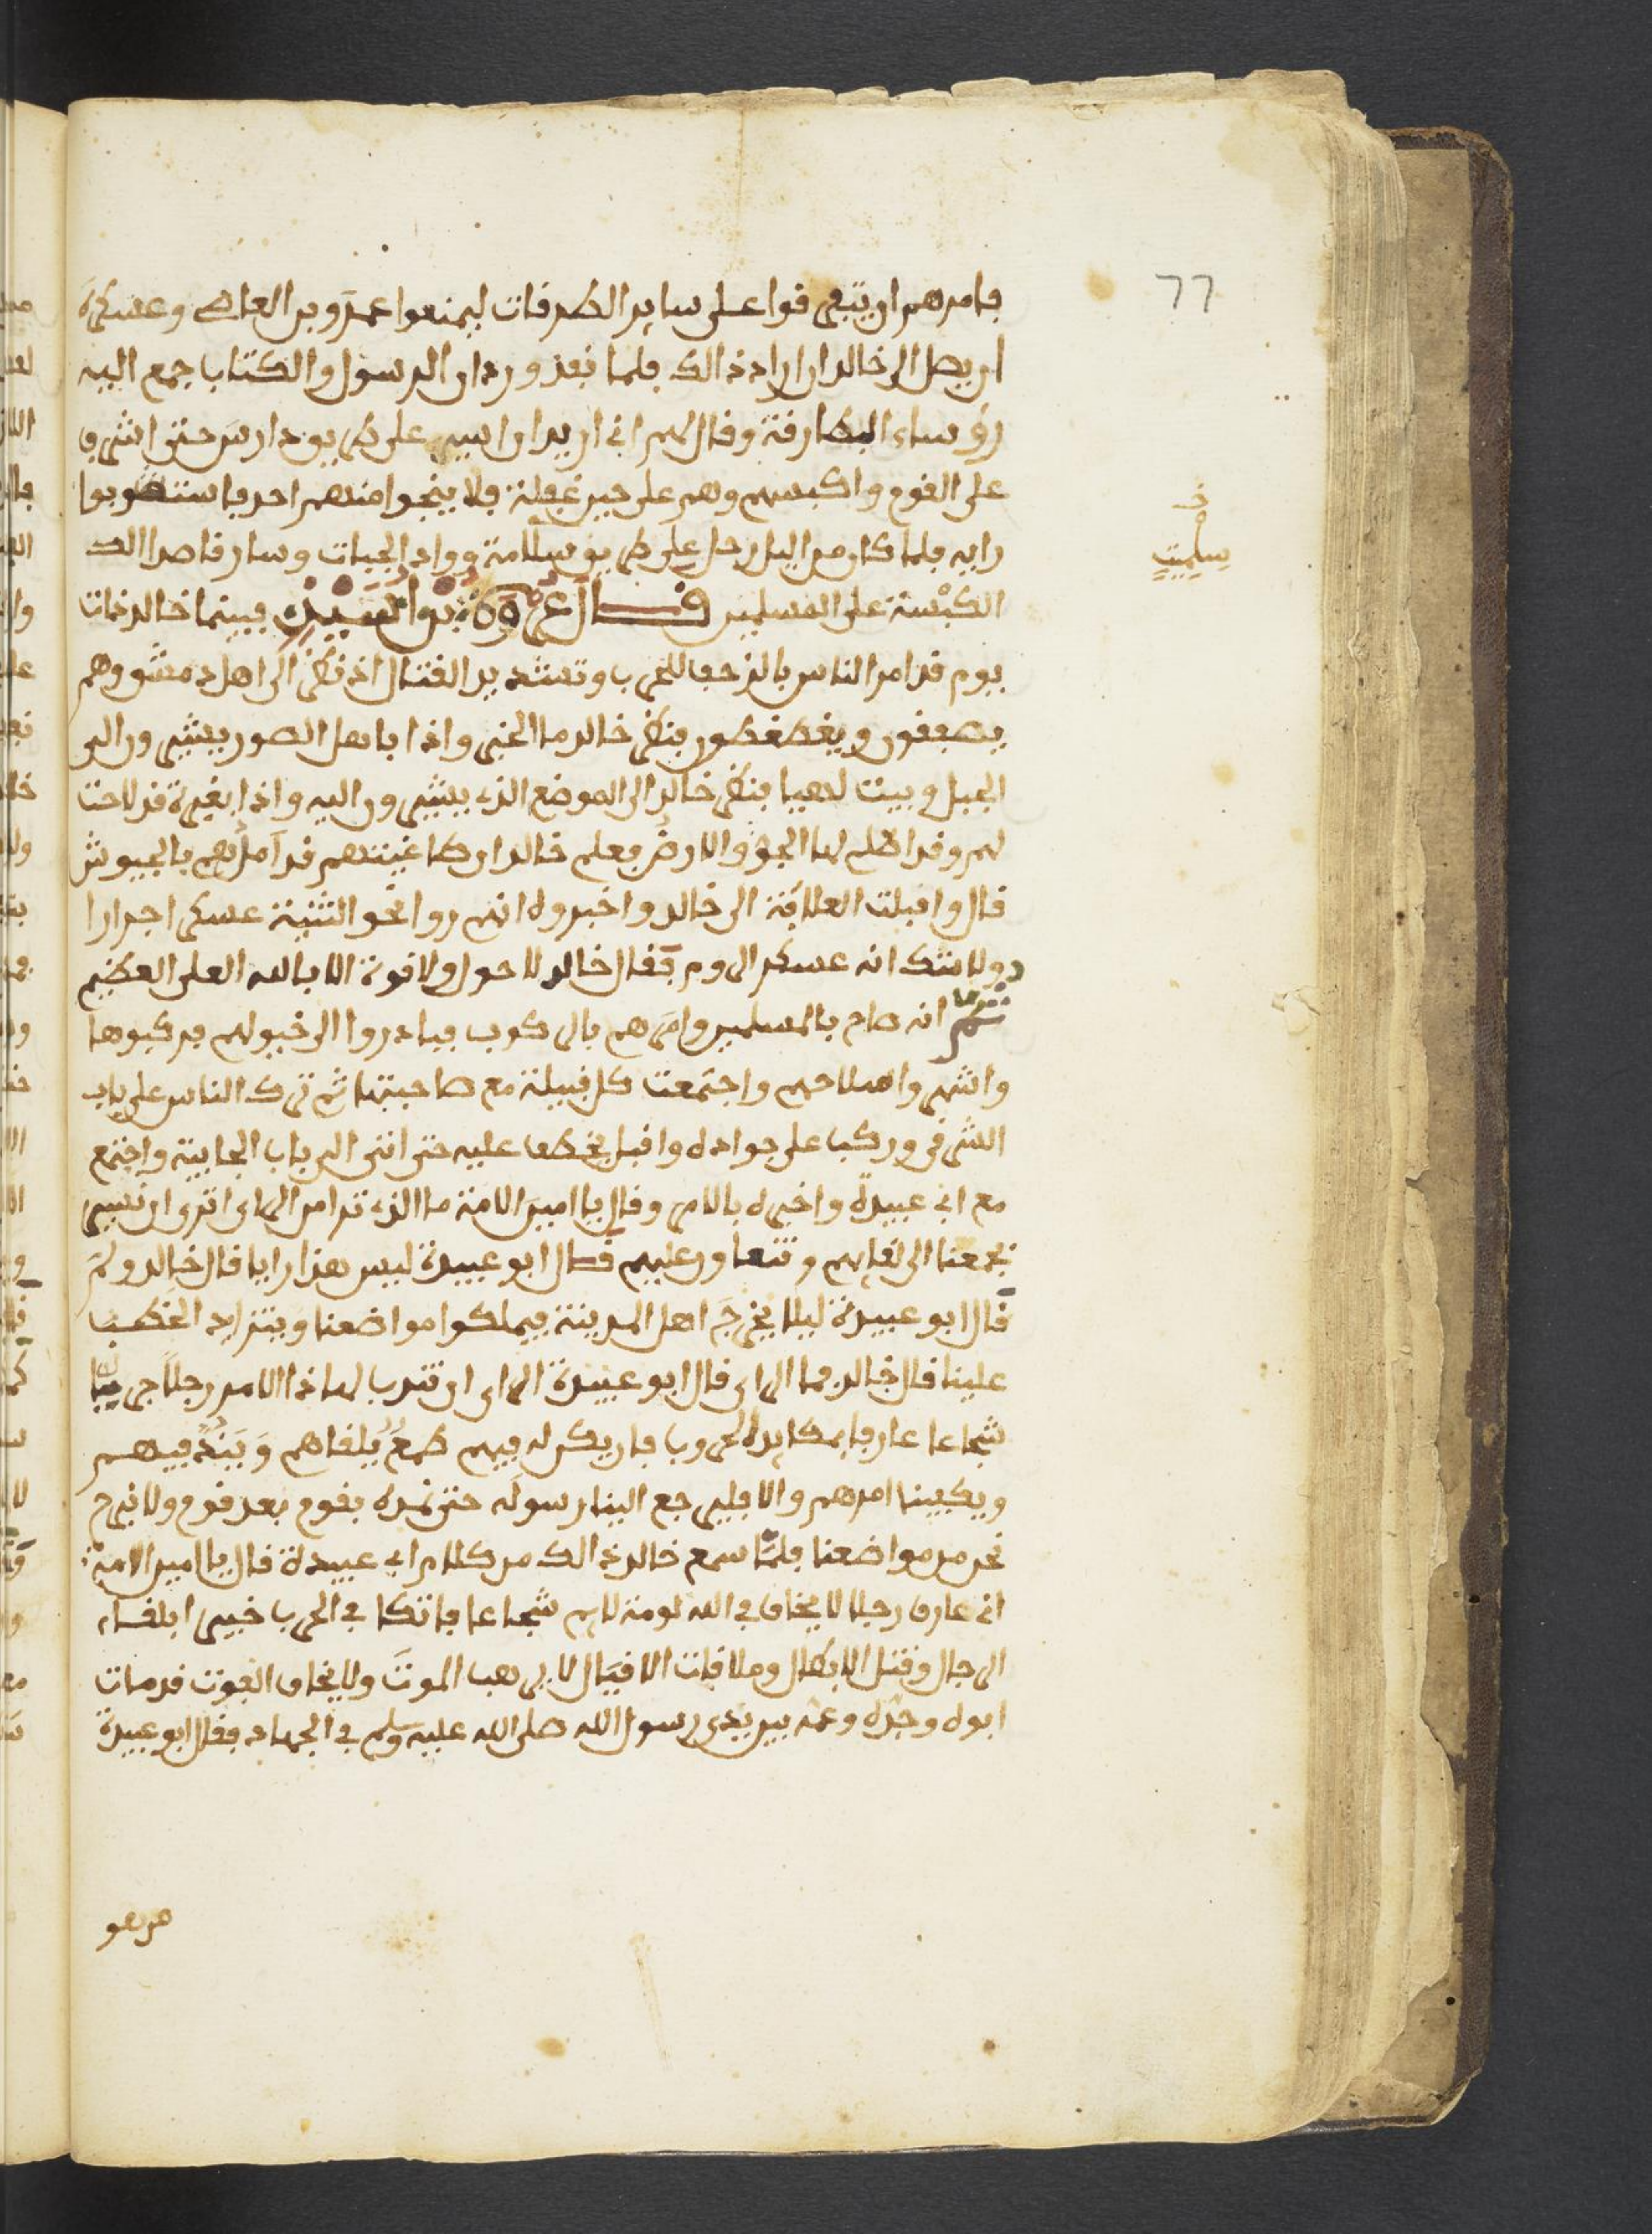 77
فامرهم ان يتفرقوا على ساير الطرقات ليمنعوا عمرو بن العاصي وعسكره
ان يصل الى خالد ان اراد ذالك فلما نفذ وردان الرسول والكتاب جمع اليه
رؤساء البطارقة وقال لهم اني اريد ان اسير على طريق مارس حتى اشرف
على القوم واكبسهم وهم على حين غفلة فلا ينجوا منهم احد فاستصوبوا
رايه فلما كان من اليل رحل على طريق سلامة وواد الحيات وسار قاصدا الى
خ
سلميت
الكبسة على المسلمين قال فبينما خالد ذات
يوم قد امر الناس بالزحف للحرب وتشديد القتال اذ نظر الى اهل دمشق وهم
يصفقون ويغطغطون فنظر خالد ما الخبر واذا باهل الصور يشيرون الى
الجبل وبيت لهيا فنظر خالد الى الموضع الذي يشيرون اليه واذا بغبرة قد لاحت
لهم وقد اظلم لها الجو والارض فعلم خالد ان طاغيتهم قد امدهم بالجيوش
قال واقبلت العلافة الى خالد واخبروه انهم راوا نحو الثنية عسكرا جرارا
ولا شك انه عسكر الروم فقال خالد لا حول ولا قوة الا بالله العلي العظيم
ثم انه صاح بالمسلمين وامرهم بالركوب فبادروا الى خيولهم فركبوها
واشهروا سلاحهم واجتمعت كل قبيلة مع صاحبتها ثم ترك الناس على باب
الشرقي وركب على جواده واقبل يخطف عليه حتى اتى الى باب الجابية واجتمع
مع ابي عبيدة واخبره بالامر وقال يا امين الامة ما الذي تدامر الراي اترى ان نسير
بجمعنا الى لقايهم ونتعاون عليهم فقال ابو عبيدة ليس هذا رايا قال خالد ولم
قال ابو عبيدة ليلا يخرج اهل المدينة فيملكوا مواضعنا ويتزايد الخطب
علينا قال خالد فما الراي قال ابو عبيدة الراي ان تندب لهاذا الامر رجلا جريا
شجاعا عارفا بمكايد الحروب فان يكن له فيهم طمع يلقاهم وينفذ فيهم
ويكفينا امرهم والا فليرجع الينا رسوله حتى نمده بقوم بعد قوم ولا نبرح
نحن من مواضعنا فلما سمع خالد ذالك من كلام ابي عبيدة قال يا امين الامة
اني عارف رجلا لا يخاف في الله لومة لايم شجاعا فاتكا في الحرب خبيرا بلقاء
الرجال وقتل الابطال وملاقات الاقيال لا يرهب الموت ولا يخاف الفوت قد مات
ابوه وجده وعمه بين يدي رسول الله صلى الله عليه وسلم في الجهاد فقال ابو عبيدة
من هو